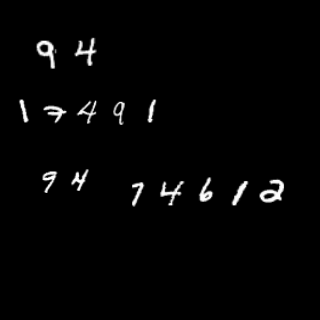 94
17491
94 74612